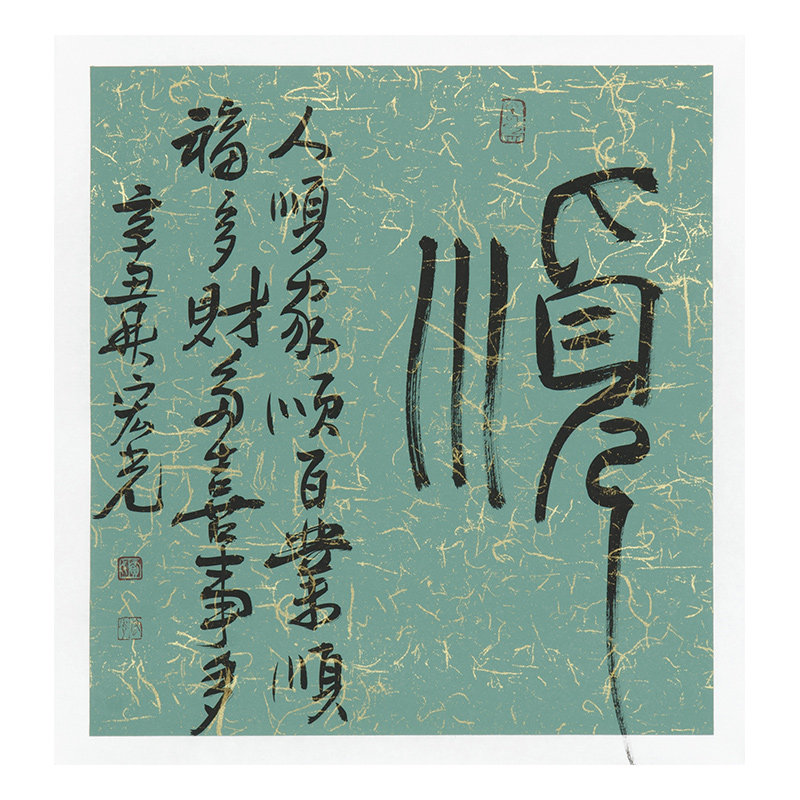 順
人順家順百業順
福多財多喜事多
辛丑吳宏光